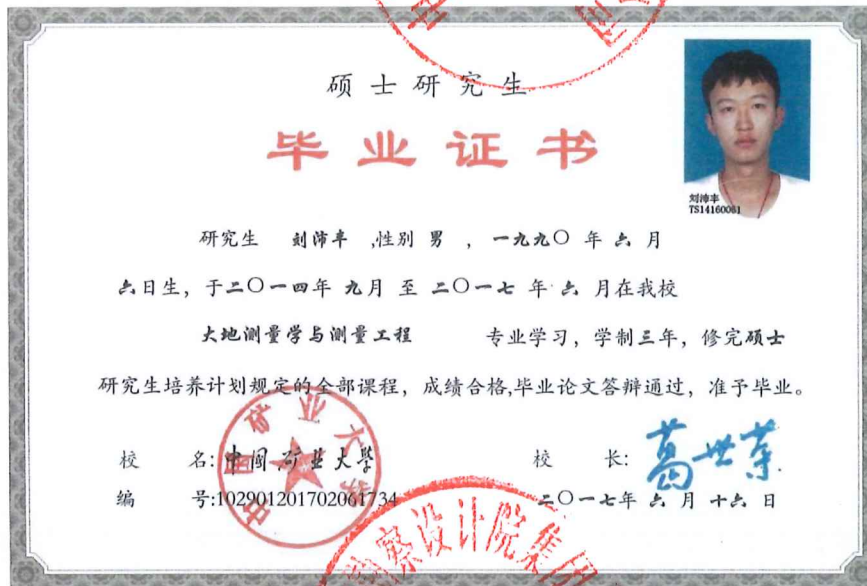 硕士研究生
毕业证书
刘沛丰
TS14160061
研究生 刘沛丰 ,性别 男 , 一九九〇 年 六 月
六日生, 于二〇一四年 九月 至 二〇一七 年 六 月在我校
大地测量学与测量工程 专业学习, 学制三年, 修完硕士
研究生培养计划规定的全部课程, 成绩合格,毕业论文答辩通过, 准予毕业。
校 名: 中国矿业大学 校 长: 葛世荣
编 号:102901201702061734 二〇一七年 六 月 十六 日
中国矿业大学
勘察设计院集团